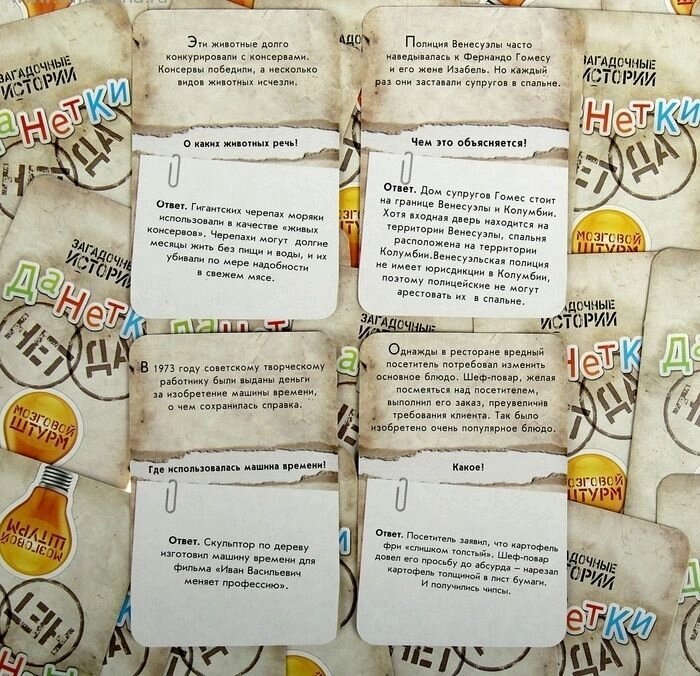 Эти животные долго
конкурировали с консервами.
Консервы победили, а несколько
видов животных исчезли.
О каких животных речь!
Ответ. Гигантских черепах моряки
использовали в качестве «живых
консервов». Черепахи могут долгие
месяцы жить без пищи и воды, и их
убивали по мере надобности
в свежем мясе.
Полиция Венесуэлы часто
наведывалась к Фернандо Гомесу
и его жене Изабель. Но каждый
раз они заставали супругов в спальне.
Чем это объясняется!
Ответ. Дом супругов Гомес стоит
на границе Венесуэлы и Колумбии.
Хотя входная дверь находится на
территории Венесуэлы, спальня
расположена на территории
Колумбии.Венесуэльская полиция
не имеет юрисдикции в Колумбии,
поэтому полицейские не могут
арестовать их в спальне.
В 1973 году советскому творческому
работнику были выданы деньги
за изобретение машины времени,
о чем сохранилась справка.
Где использовалась машина времени!
Ответ. Скульптор по дереву
изготовил машину времени для
фильма «Иван Васильевич
меняет профессию».
Однажды в ресторане вредный
посетитель потребовал изменить
основное блюдо. Шеф-повар, желая
посмеяться над посетителем,
выполнил его заказ, преувеличив
требования клиента. Так было
изобретено очень популярное блюдо.
Какое!
Ответ. Посетитель заявил, что картофель
фри «слишком толстый». Шеф-повар
довел его просьбу до абсурда – нарезал
картофель толщиной в лист бумаги.
И получились чипсы.
ЗАГАДОЧНЫЕ
ИСТОРИИ
ДаНетКи
ДА
ЗАГАДОЧНЫЕ
ИСТОРИИ
НетКи
ДА
МОЗГОВОЙ
ШТУРМ
ЗАГАДОЧНЫЕ
ИСТОРИИ
ДаНетКи
НЕТ
ДА
МОЗГОВОЙ
ШТУРМ
МОЗГОВОЙ
ШТУРМ
НЕТ